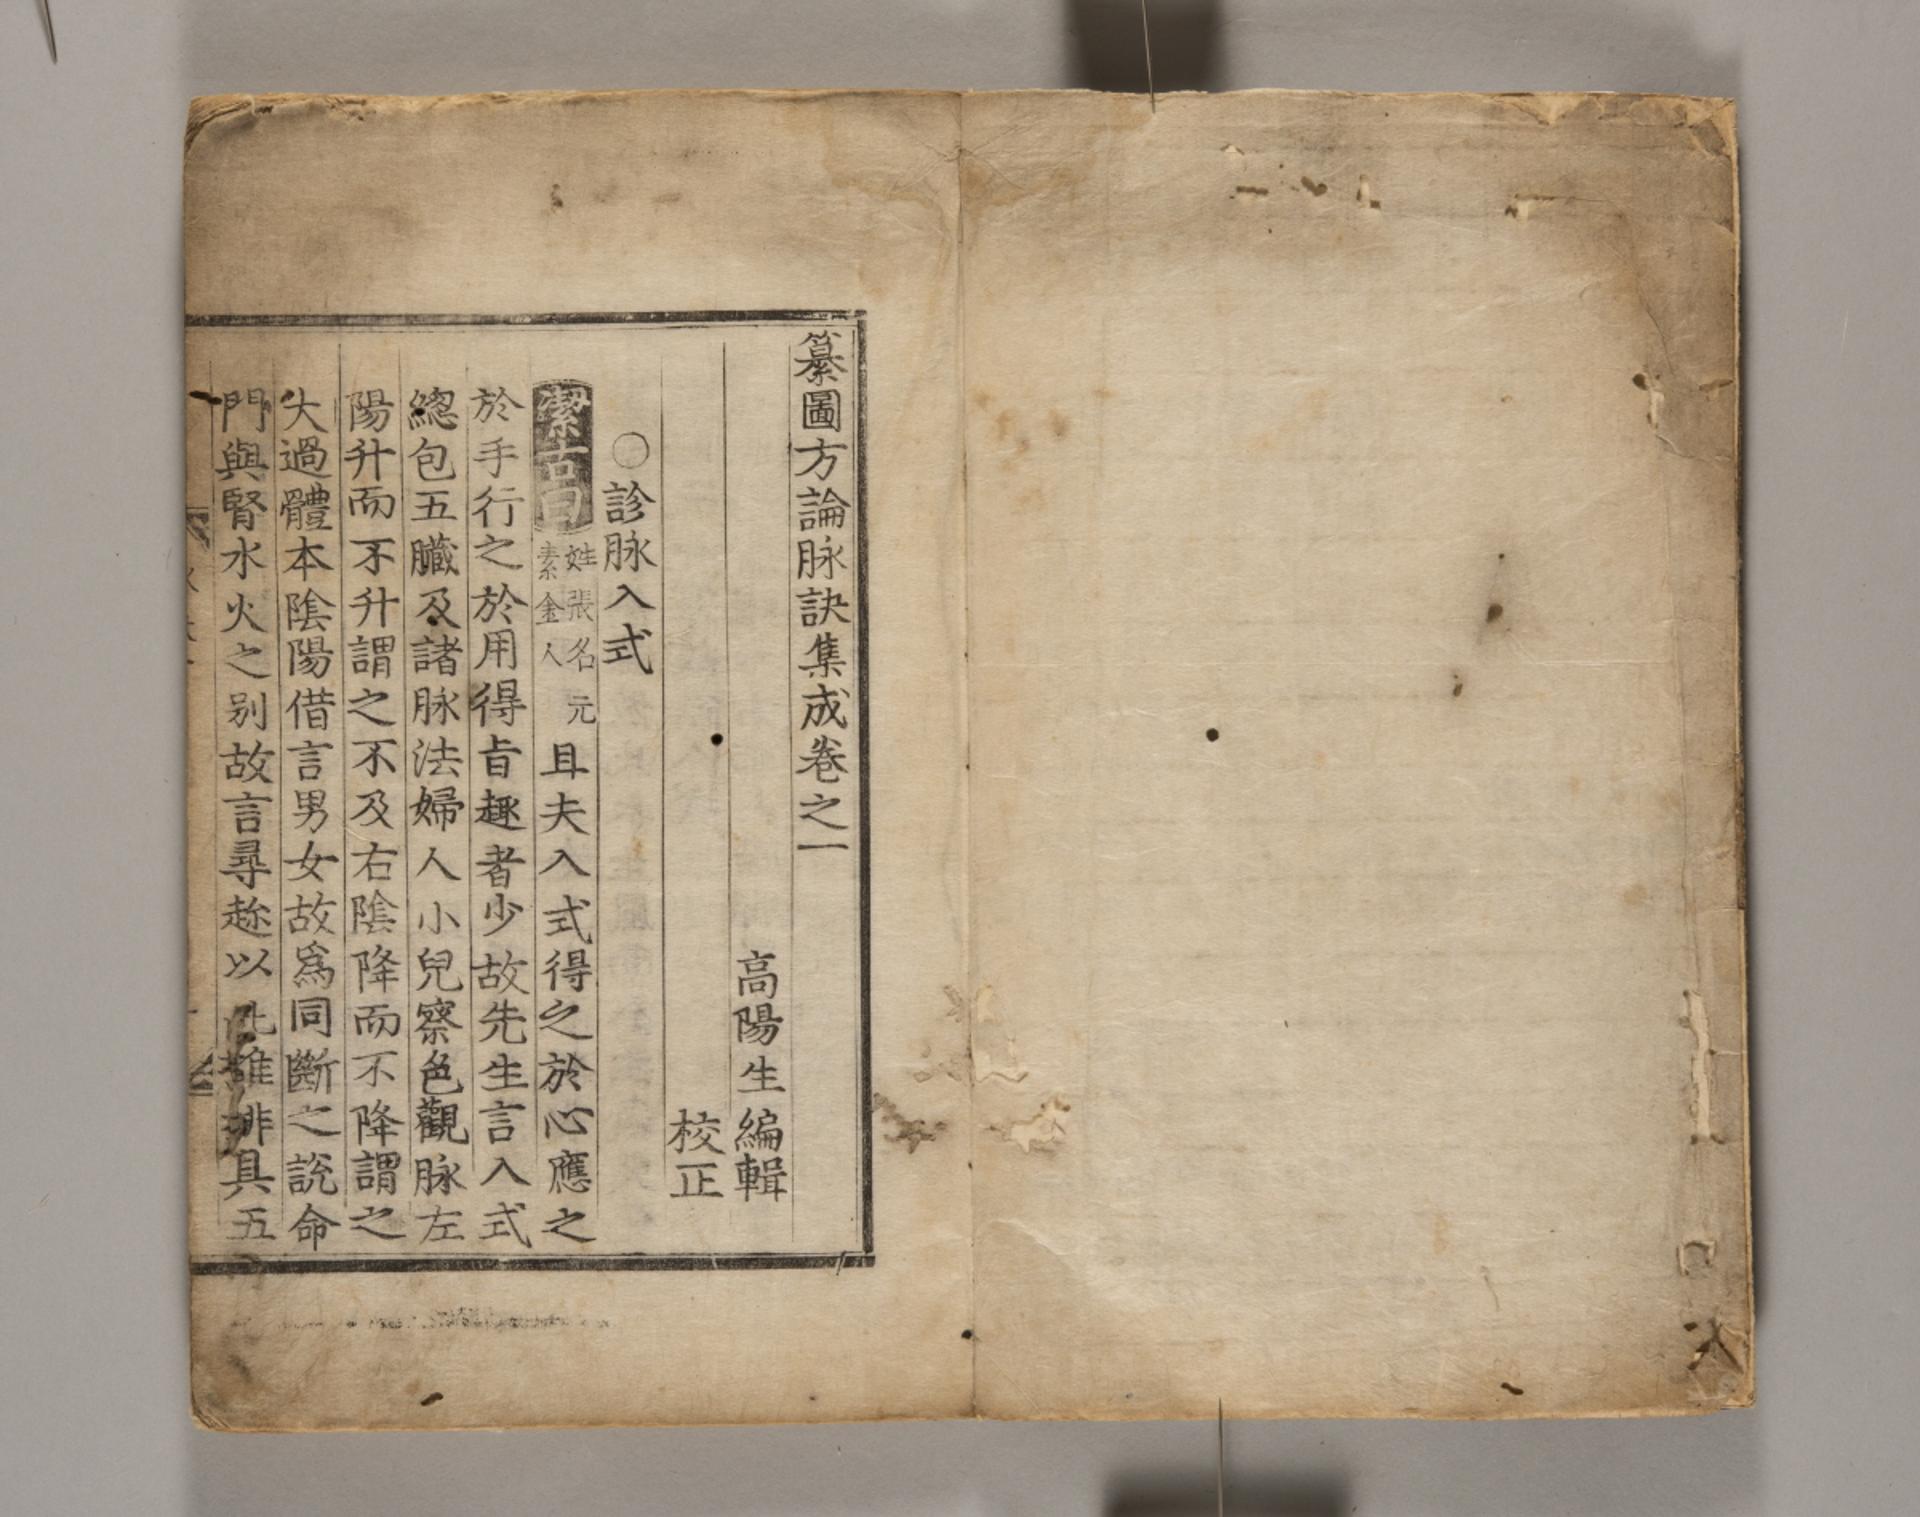 纂圖方論脉訣集成卷之一
高陽生編輯
校正
○診脉入式
潔古姓張名元素金人且夫入式得之於心應之
於手行之於用得旨趣者少故先生言入式
總包五臟及諸脉法婦人小兒察色觀脉左
陽升而不升謂之不及右陰降而不降謂之
大過體本陰陽借言男女故爲同斷之說命
門與腎水火之别故言尋趂以此推排具五